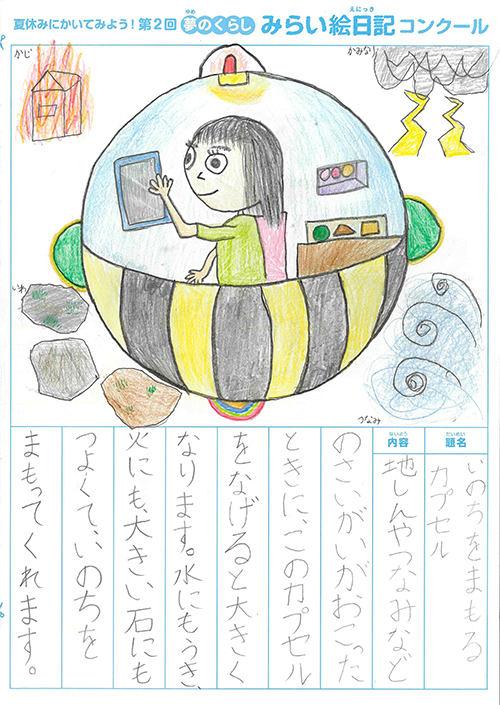 夏休みにかいてみよう！第2回 夢のくらし みらい絵日記コンクール
ゆめ
えにっき
かじ
かみなり
いわ
つなみ
だいめい
題名
いのちをまもる
カプセル
ないよう
内容
地しんやつなみなど
のさいがいが、おこった
ときに、このカプセル
をなげると大きく
なります。水にもうき、
火にも、大きい石にも
つよくて、いのちを
まもってくれます。